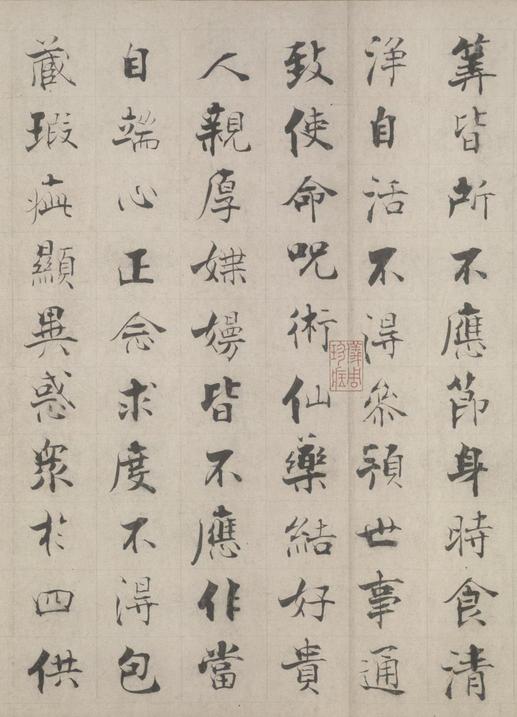 筭皆所不應節身時食清
淨自活不得參預世事通
致使命呪術仙藥結好貴
人親厚媟嫚皆不應作當
自端心正念求度不得包
藏瑕疵顯異惑眾於四供